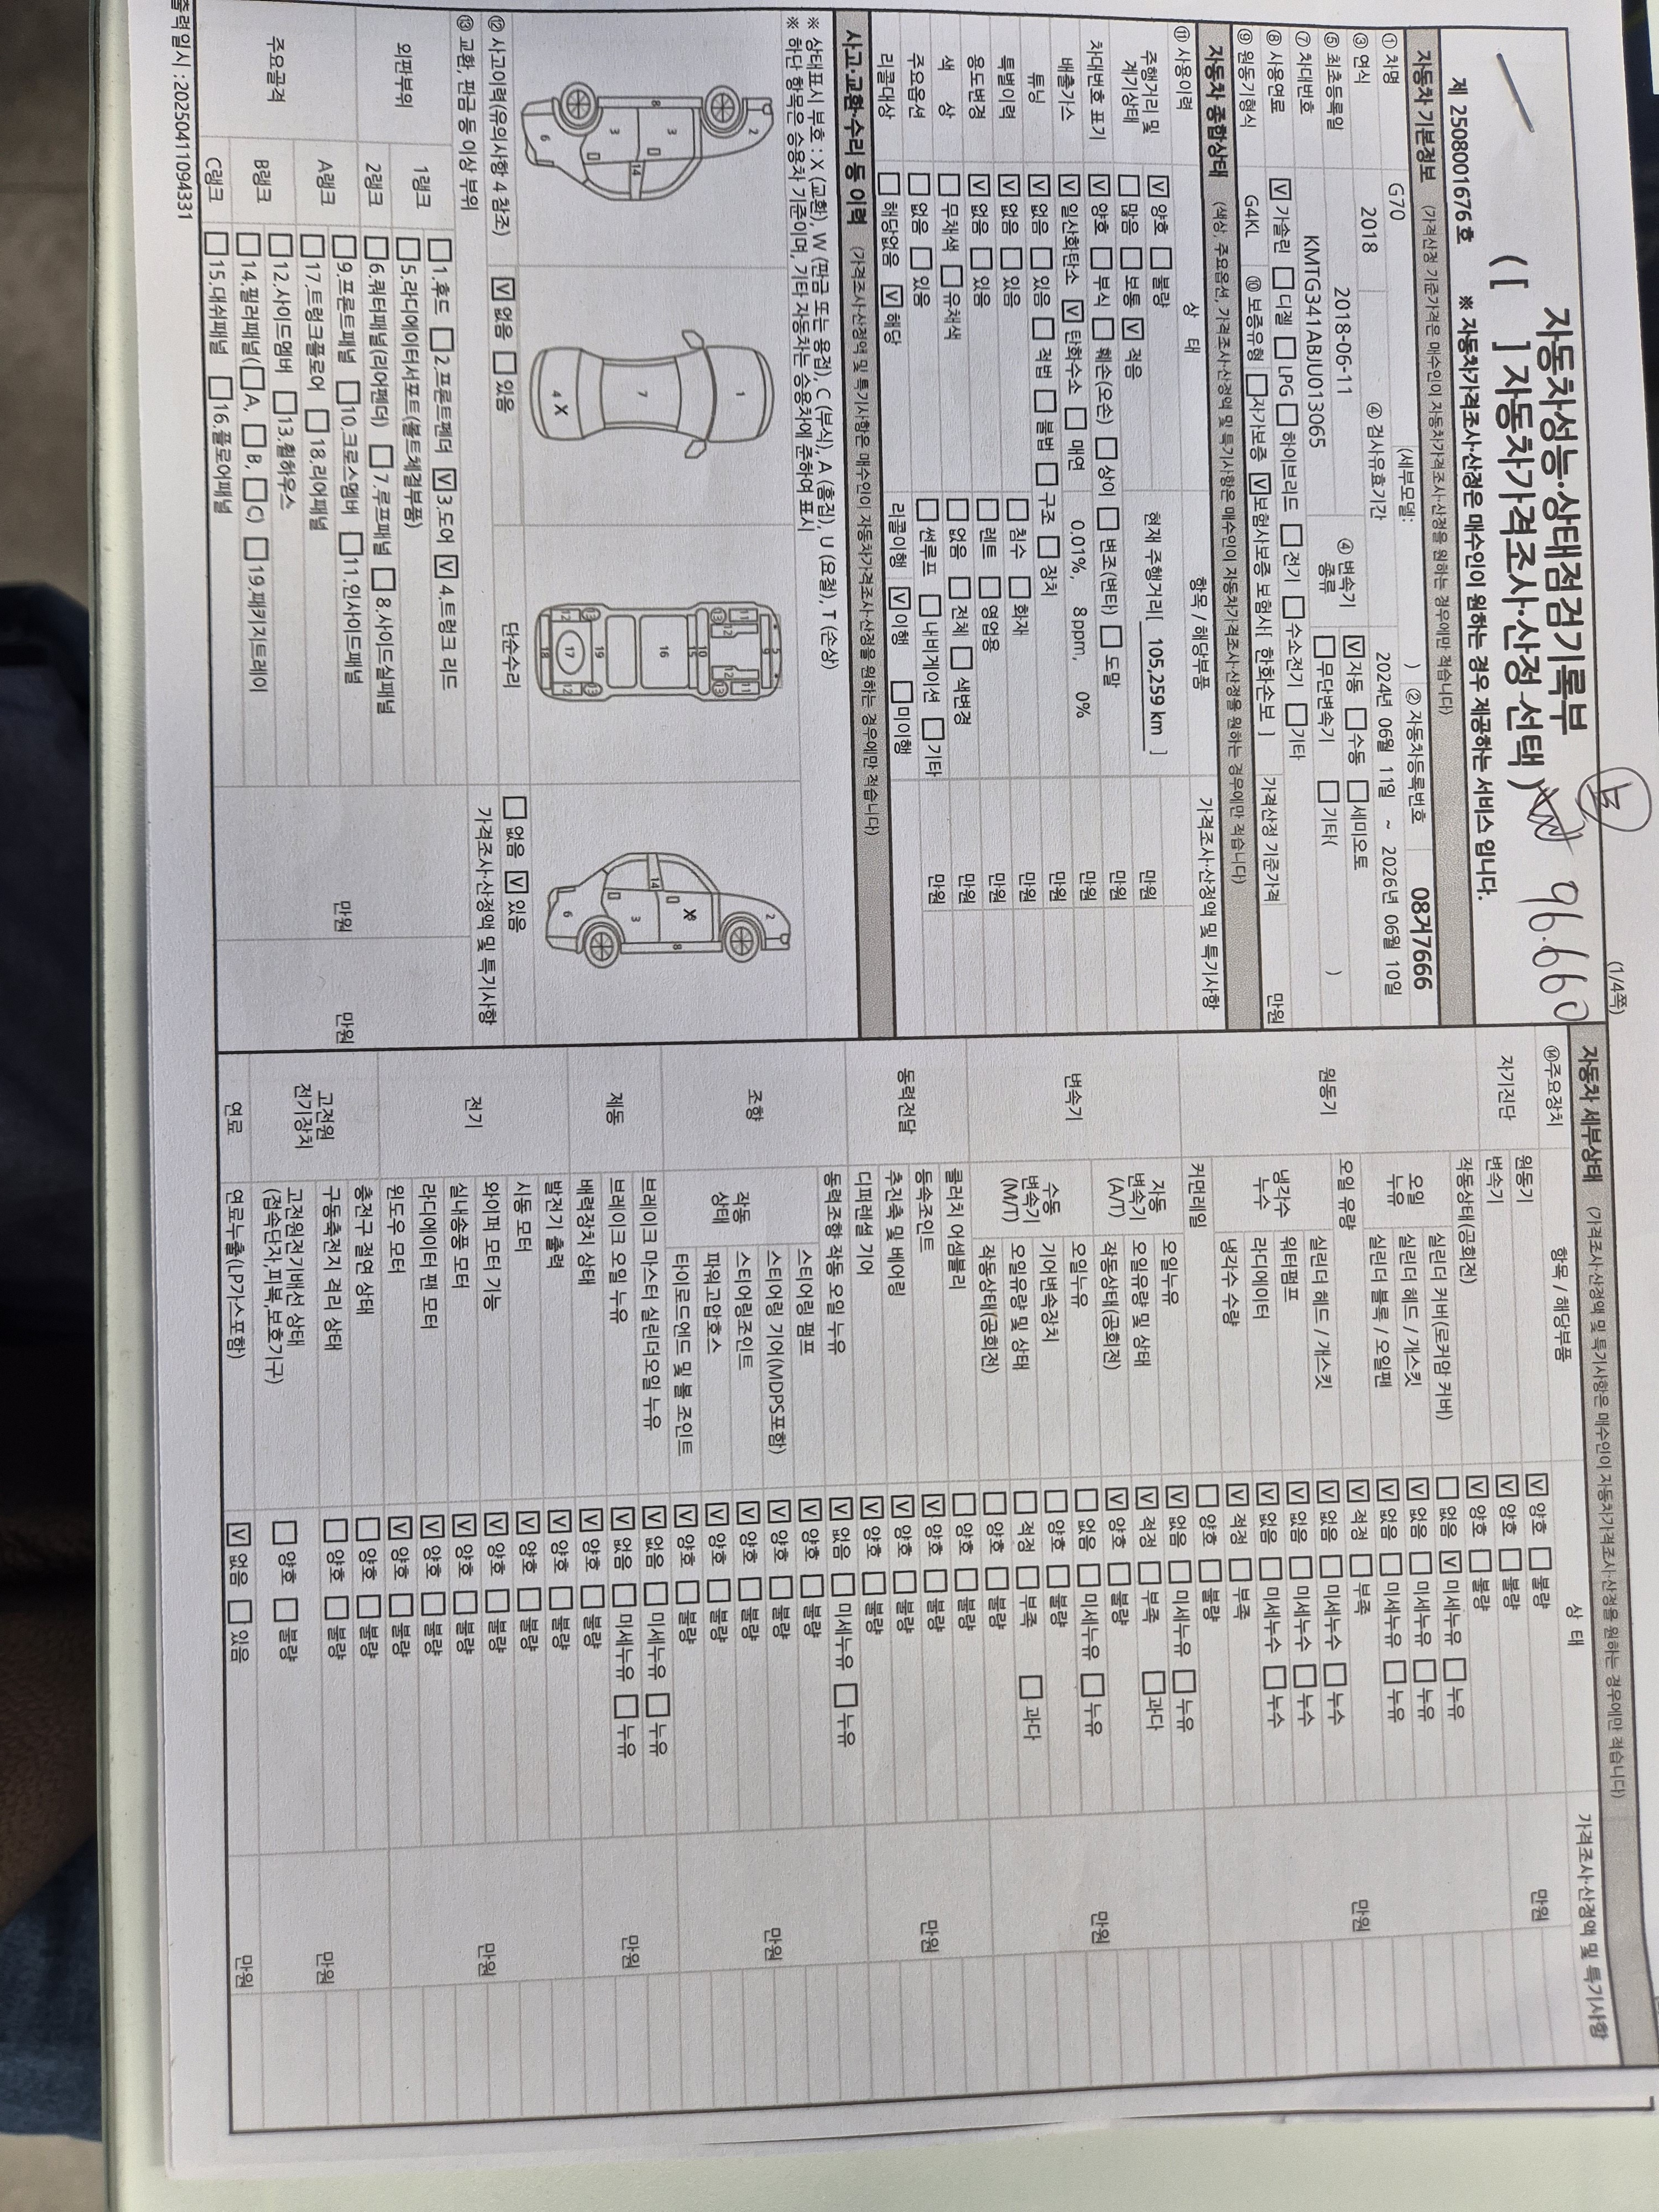 (1/4쪽)
자동차성능·상태점검기록부
([ ] 자동차가격조사·산정 선택 )
96.660
제 2508001676 호
※ 자동차가격조사·산정은 매수인이 원하는 경우 제공하는 서비스 입니다.
자동차 기본정보 (가격산정 기준가격은 매수인이 자동차가격조사·산정을 원하는 경우에만 적습니다)
① 차명 G70 (세부모델: ) ② 자동차등록번호 08거7666
③ 연식 2018 ④ 검사유효기간 2024년 06월 11일 ~ 2026년 06월 10일
⑤ 최초등록일 2018-06-11 ④ 변속기 종류 [V]자동 [ ]수동 [ ]세미오토
⑦ 차대번호 KMTG341ABJU013065 [ ]무단변속기 [ ]기타( )
⑧ 사용연료 [V]가솔린 [ ]디젤 [ ]LPG [ ]하이브리드 [ ]전기 [ ]수소전기 [ ]기타
⑨ 원동기형식 G4KL ⑩ 보증유형 [ ]자가보증 [V]보험사보증 보험사[ 한화손보 ] 가격산정 기준가격 만원
자동차 종합상태 (색상, 주요옵션, 가격조사·산정액 및 특기사항은 매수인이 자동차가격조사·산정을 원하는 경우에만 적습니다)
⑪ 사용이력 상 태 항목 / 해당부품 가격조사·산정액 및 특기사항
주행거리 및 계기상태 [V]양호 [ ]불량 현재 주행거리[ 105,259 km ] 만원
[ ]많음 [ ]보통 [V]적음 만원
차대번호 표기 [V]양호 [ ]부식 [ ]훼손(오손) [ ]상이 [ ]변조(변타) [ ]도말 만원
배출가스 [V]일산화탄소 [V]탄화수소 [ ]매연 0.01%, 8ppm, 0% 만원
튜닝 [V]없음 [ ]있음 [ ]적법 [ ]불법 [ ]구조 [ ]장치 만원
특별이력 [V]없음 [ ]있음 [ ]침수 [ ]화재 만원
용도변경 [V]없음 [ ]있음 [ ]렌트 [ ]영업용 만원
색 상 [ ]무채색 [ ]유채색 [ ]없음 [ ]전체 [ ]색변경 만원
주요옵션 [ ]없음 [ ]있음 [ ]썬루프 [ ]내비게이션 [ ]기타 만원
리콜대상 [ ]해당없음 [V]해당 리콜이행 [V]이행 [ ]미이행
사고·교환·수리 등 이력 (가격조사·산정액 및 특기사항은 매수인이 자동차가격조사·산정을 원하는 경우에만 적습니다)
※ 상태표시 부호 : X (교환), W (판금 또는 용접), C (부식), A (흠집), U (요철), T (손상)
※ 하단 항목은 승용차 기준이며, 기타 자동차는 승용차에 준하여 표시
2 3 3 8 14 6
1 7 4 X
5 9 11 11 12 12 13 13 10 15 16 19 13 13 12 12 17 18
2 8 X 3 14 6
⑫ 사고이력(유의사항 4 참조) [V]없음 [ ]있음 단순수리 [ ]없음 [V]있음
⑬ 교환, 판금 등 이상 부위 가격조사·산정액 및 특기사항
외판부위 1랭크 [ ]1.후드 [ ]2.프론트펜더 [V]3.도어 [V]4.트렁크 리드
[ ]5.라디에이터서포트(볼트체결부품)
2랭크 [ ]6.쿼터패널(리어펜더) [ ]7.루프패널 [ ]8.사이드실패널
주요골격 A랭크 [ ]9.프론트패널 [ ]10.크로스멤버 [ ]11.인사이드패널 만원 만원
[ ]17.트렁크플로어 [ ]18.리어패널
B랭크 [ ]12.사이드멤버 [ ]13.휠하우스
[ ]14.필러패널([ ]A, [ ]B, [ ]C) [ ]19.패키지트레이
C랭크 [ ]15.대쉬패널 [ ]16.플로어패널
출력일시 :20250411094331
자동차 세부상태 (가격조사·산정액 및 특기사항은 매수인이 자동차가격조사·산정을 원하는 경우에만 적습니다)
⑭주요장치 항목 / 해당부품 상 태 가격조사·산정액 및 특기사항
자기진단 원동기 [V]양호 [ ]불량 만원
변속기 [V]양호 [ ]불량
원동기 작동상태(공회전) [V]양호 [ ]불량
오일 누유 실린더 커버(로커암 커버) [ ]없음 [V]미세누유 [ ]누유
실린더 헤드 / 개스킷 [V]없음 [ ]미세누유 [ ]누유
실린더 블록 / 오일팬 [V]없음 [ ]미세누유 [ ]누유
오일 유량 [V]적정 [ ]부족 만원
냉각수 누수 실린더 헤드 / 개스킷 [V]없음 [ ]미세누수 [ ]누수
워터펌프 [V]없음 [ ]미세누수 [ ]누수
라디에이터 [V]없음 [ ]미세누수 [ ]누수
냉각수 수량 [V]적정 [ ]부족
커먼레일 [ ]양호 [ ]불량
변속기 자동 변속기 (A/T) 오일누유 [V]없음 [ ]미세누유 [ ]누유
오일유량 및 상태 [V]적정 [ ]부족 [ ]과다
작동상태(공회전) [V]양호 [ ]불량
수동 변속기 (M/T) 오일누유 [ ]없음 [ ]미세누유 [ ]누유 만원
기어변속장치 [ ]양호 [ ]불량
오일유량 및 상태 [ ]적정 [ ]부족 [ ]과다
작동상태(공회전) [ ]양호 [ ]불량
동력전달 클러치 어셈블리 [ ]양호 [ ]불량
등속조인트 [V]양호 [ ]불량 만원
추진축 및 베어링 [V]양호 [ ]불량
디퍼렌셜 기어 [V]양호 [ ]불량
조향 동력조향 작동 오일 누유 [V]없음 [ ]미세누유 [ ]누유
작동 상태 스티어링 펌프 [V]양호 [ ]불량
스티어링 기어(MDPS포함) [V]양호 [ ]불량 만원
스티어링조인트 [V]양호 [ ]불량
파워고압호스 [V]양호 [ ]불량
타이로드엔드 및 볼 조인트 [V]양호 [ ]불량
제동 브레이크 마스터 실린더오일 누유 [V]없음 [ ]미세누유 [ ]누유
브레이크 오일 누유 [V]없음 [ ]미세누유 [ ]누유 만원
배력장치 상태 [V]양호 [ ]불량
전기 발전기 출력 [V]양호 [ ]불량
시동 모터 [V]양호 [ ]불량
와이퍼 모터 기능 [V]양호 [ ]불량 만원
실내송풍 모터 [V]양호 [ ]불량
라디에이터 팬 모터 [V]양호 [ ]불량
윈도우 모터 [V]양호 [ ]불량
고전원 전기장치 충전구 절연 상태 [ ]양호 [ ]불량
구동축전지 격리 상태 [ ]양호 [ ]불량 만원
고전원전기배선 상태 (접속단자,피복,보호기구) [ ]양호 [ ]불량
연료 연료누출(LP가스포함) [V]없음 [ ]있음 만원